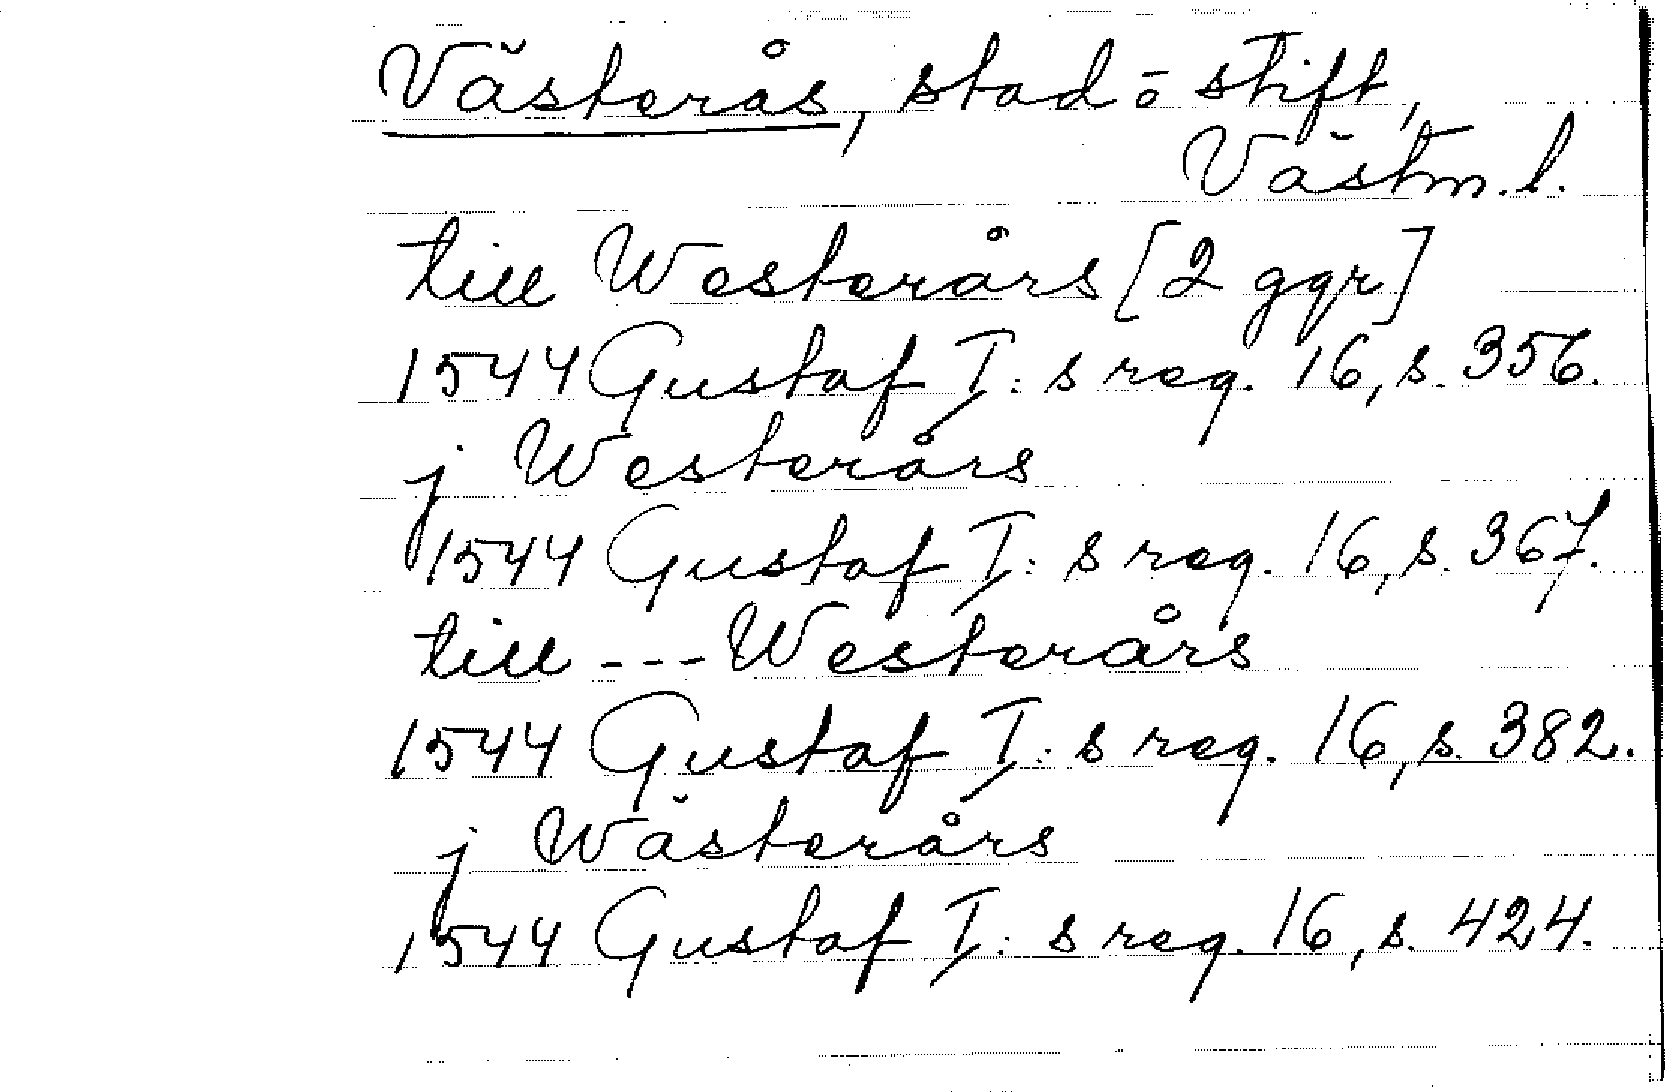 Västerås, stad o stift,
Västm. l.
till Westerårs [2 ggr]
1544 Gustaf I:s reg. 16, s. 356.
j Westerårs
1544 Gustaf I:s reg. 16, s. 367.
till --- Westerårs
1544 Gustaf I:s reg. 16, s. 382.
j Wästerårs
1544 Gustaf I:s reg. 16, s. 424.